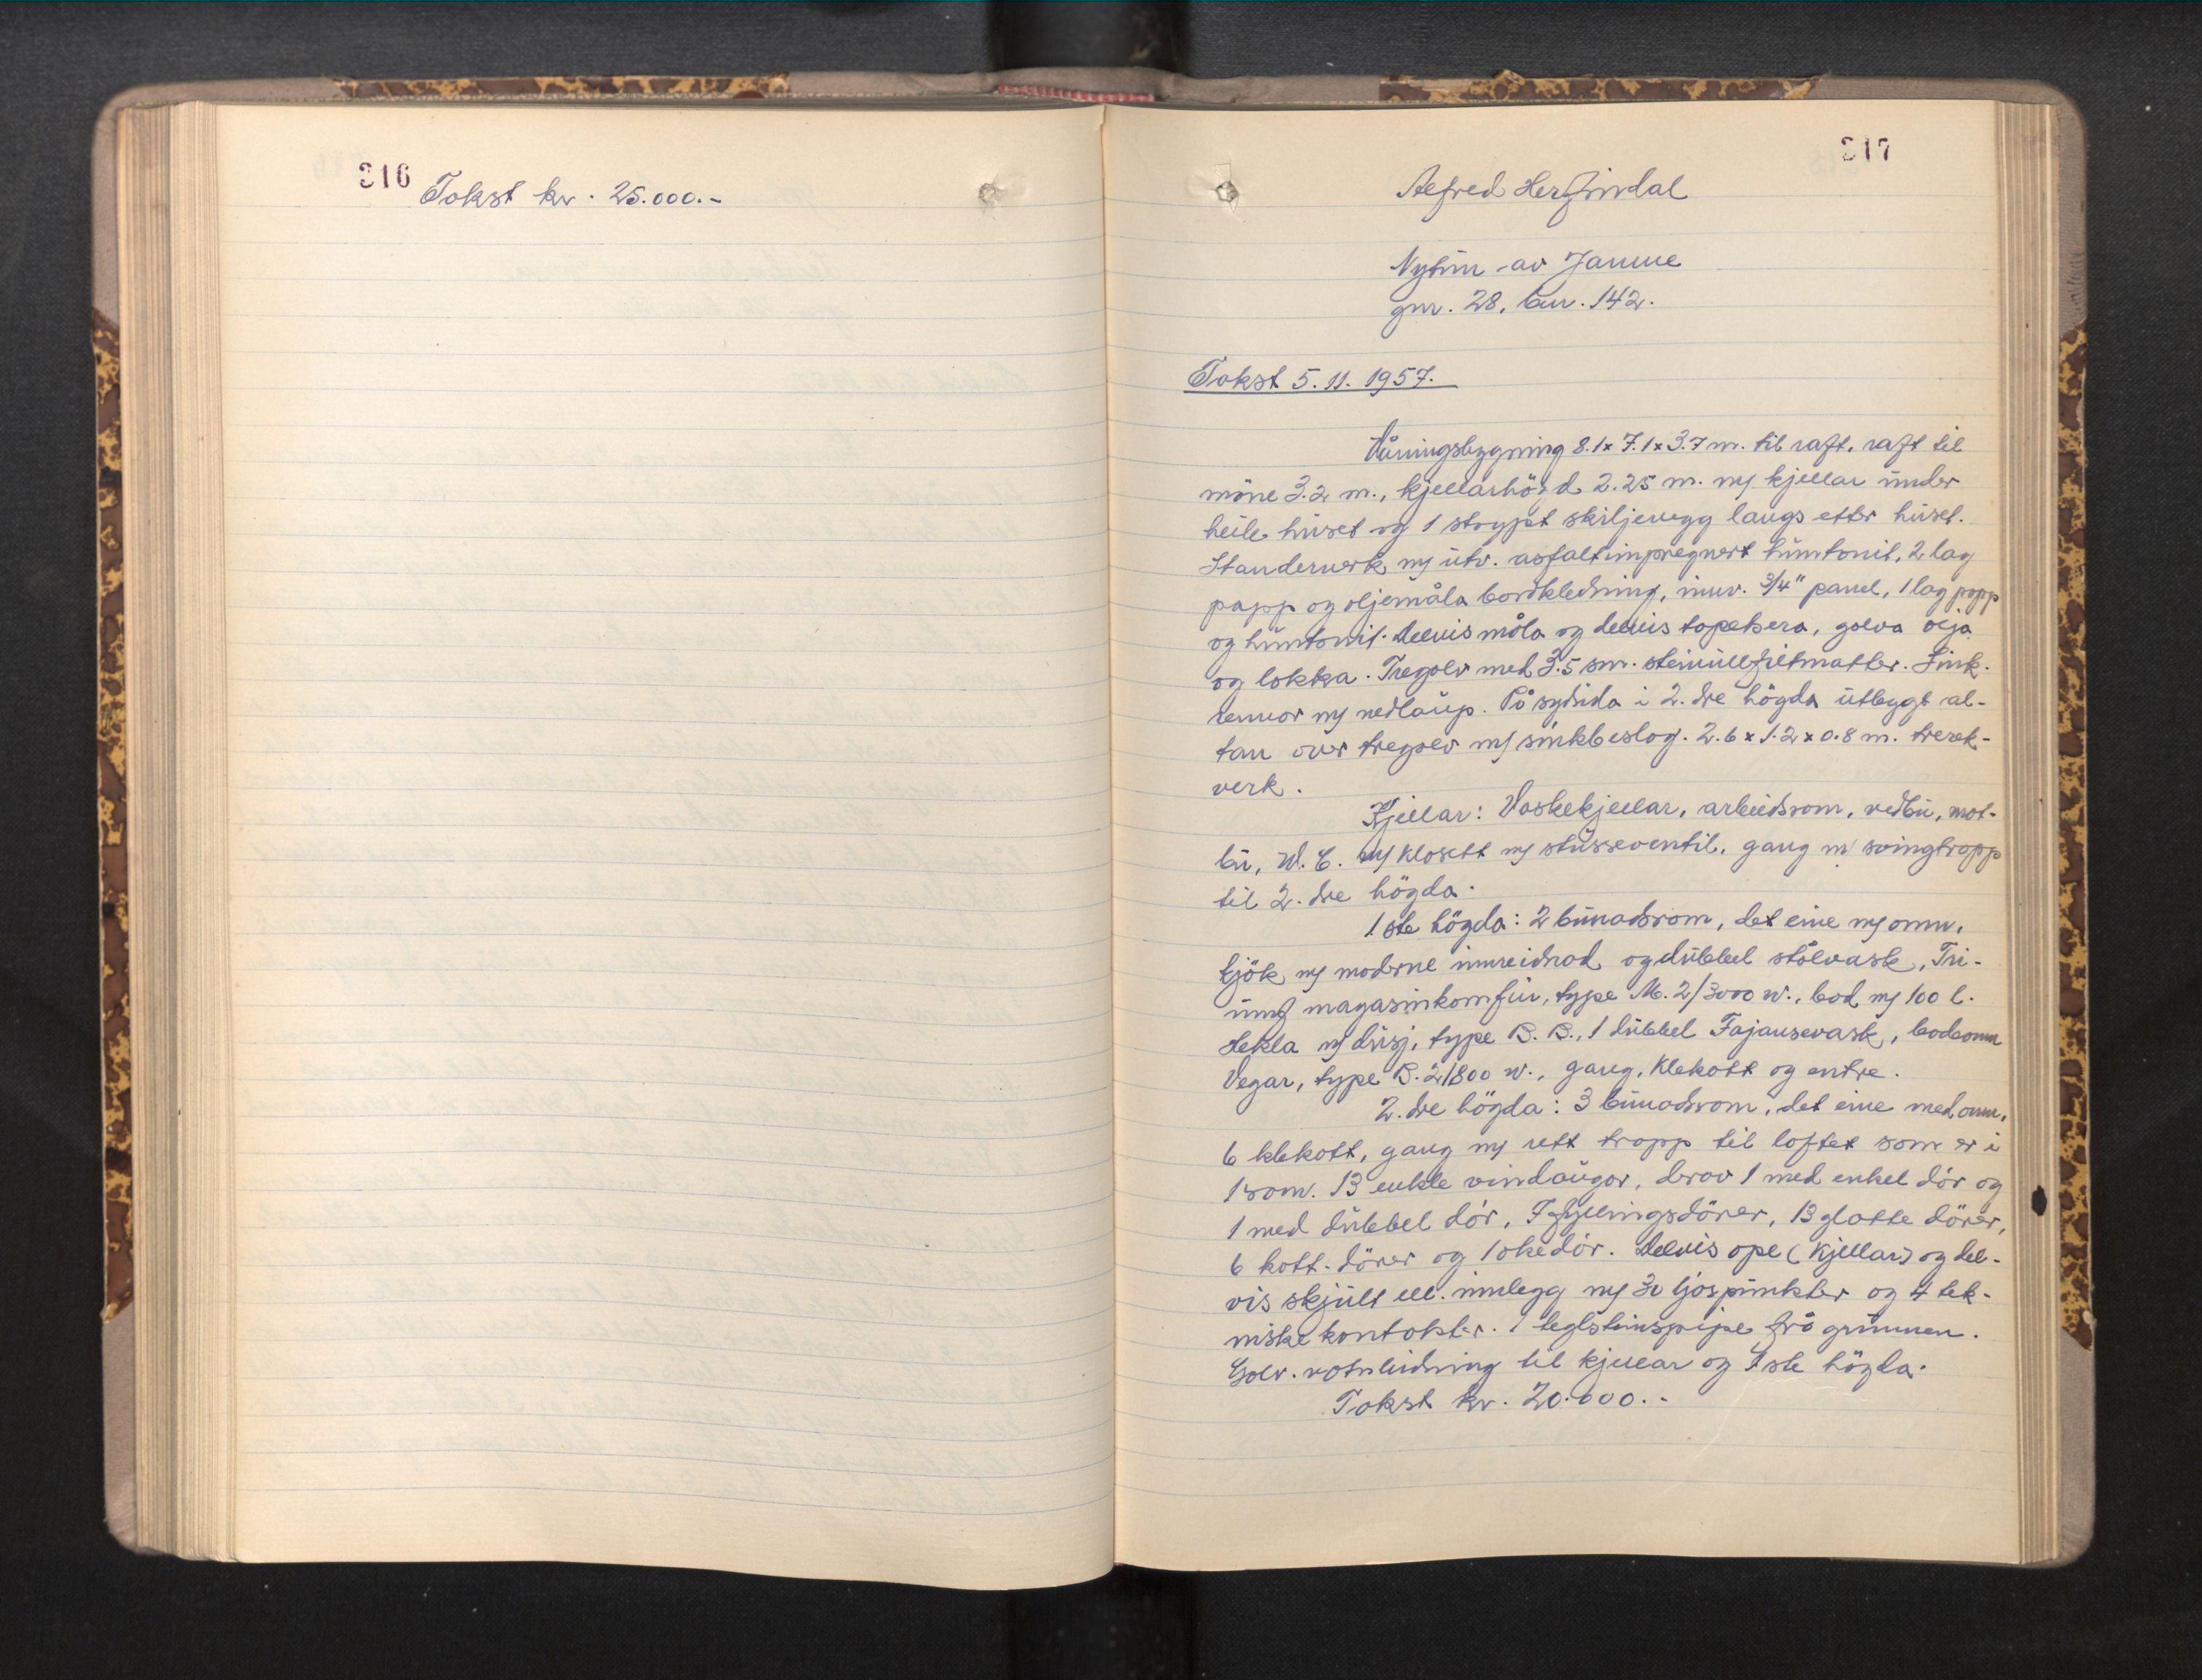 316
Takst kr. 25.000.-
317
Alfred Herfindal
Nytun av Janne
gnr. 28, bnr. 142.
Takst 5.11. 1957.
Våningsbygning 8.1x7.1x3.7 m. til raft, raft til
möne 3.2 m., kjellarhögd 2.25 m. m/ kjellar under
heile huset og 1 stoypt skiljevegg langs etter huset.
Standerverk m/ utv. asfaltimpregnert huntonit, 2 lag
papp og oljemåla bordkledning, innv. 3/4" panel, 1 lag papp
og huntonit. Delvis måla og delvis tapetsera, golva olja
og lakka. Tregolv med 3.5 sm. steinullfiltmatter. Sink-
rennor m/ nedlaup. På sydsida i 2. dre högda utbygt al-
tan over tregolv m/ sinkbeslag. 2.6 x 1.2 x 0.8 m. trerek-
verk.
Kjellar: Vaskekjellar, arbeidsrom, vedbu, mat-
bu, W.C. m/ klosett m/ stusseventil, gang m/ svingtrapp
til 2. dre högda.
1 ste högda: 2 bunadsrom, det eine m/ omn,
kjök m/ moderne innreidnad og dubbel stålvask, Tri-
umf magasinkomfur, type M. 2/3000 w., bad m/ 100 l.
Hekla m/ dusj, type B. B., 1 dubbel Fajansevask, badeomn
Vegar, type B. 2/800 w., gang, klekott og entre.
2. dre högda: 3 bunadsrom, det eine med omn,
6 klekott, gang m/ rett trapp til loftet som er i
1 rom. 13 enkle vindaugor, derav 1 med enkel dör og
1 med dubbel dör, 7 fyllingsdörer, 13 glatte dörer,
6 kott-dörer og 1 okedör. Delvis ope (kjellar) og del-
vis skjult ell. innlegg m/ 30 ljospunkter og 4 tek-
niske kontakter. 1 teglsteinspipe frå grunnen.
Galv. vatnleidning til kjellar og 1 ste högda.
Takst kr. 20.000.-